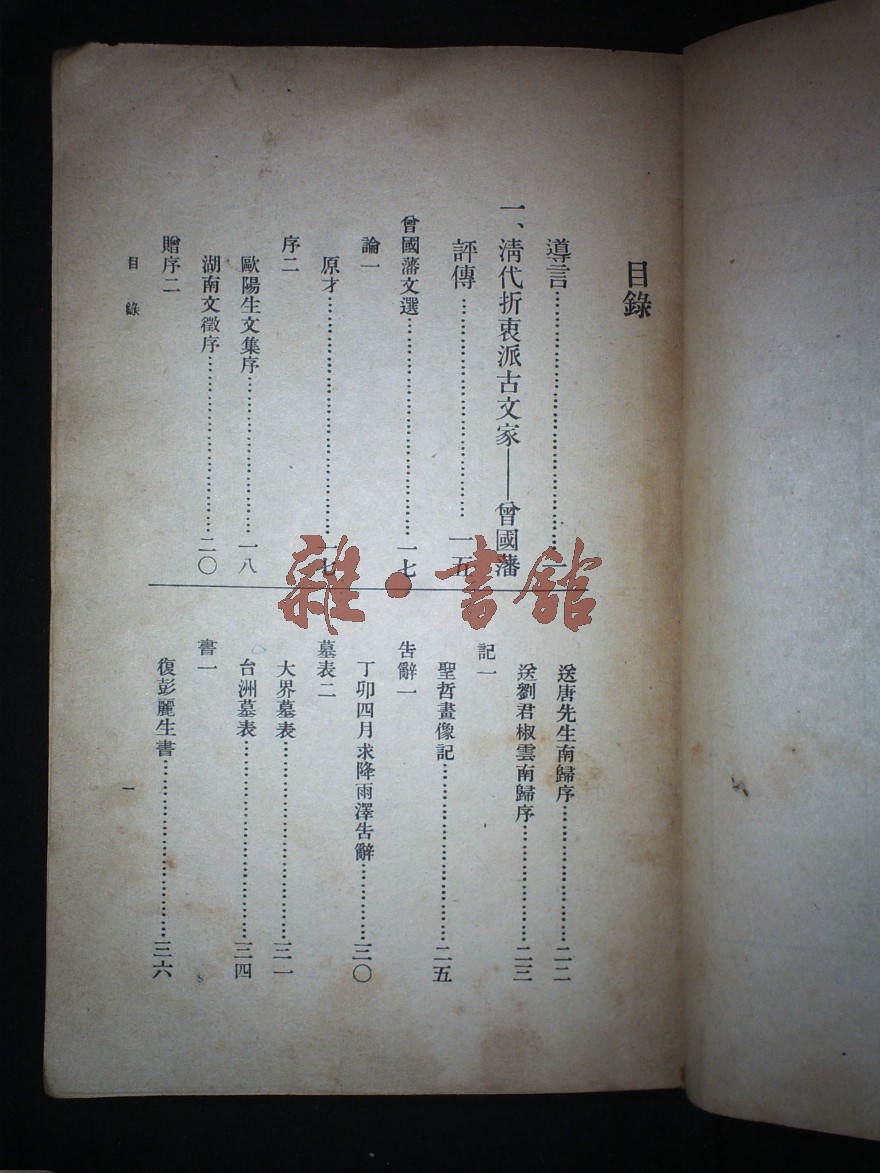 目錄
導言……一
一、清代折衷派古文家——曾國藩
評傳……一五
曾國藩文選……一七
論一
原才……一七
序二
歐陽生文集序……一八
湖南文徵序……二〇
贈序二
送唐先生南歸序……二二
送劉君椒雲南歸序……二三
記一
聖哲畫像記……二五
告辭一
丁卯四月求降雨澤告辭……三〇
墓表二
大界墓表……三一
台洲墓表……三四
書一
復彭麗生書……三六
目錄
一
雜·書館